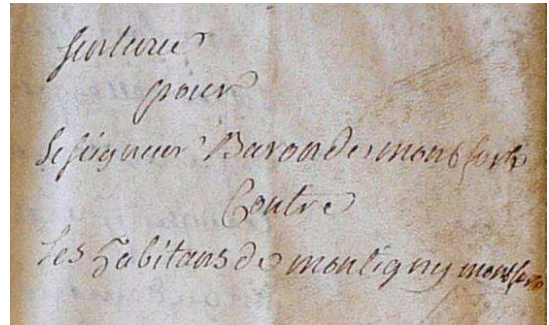 Sentence
pour
Le seigneur Baron de montfort
Contre
Les habitans de montigny montfort